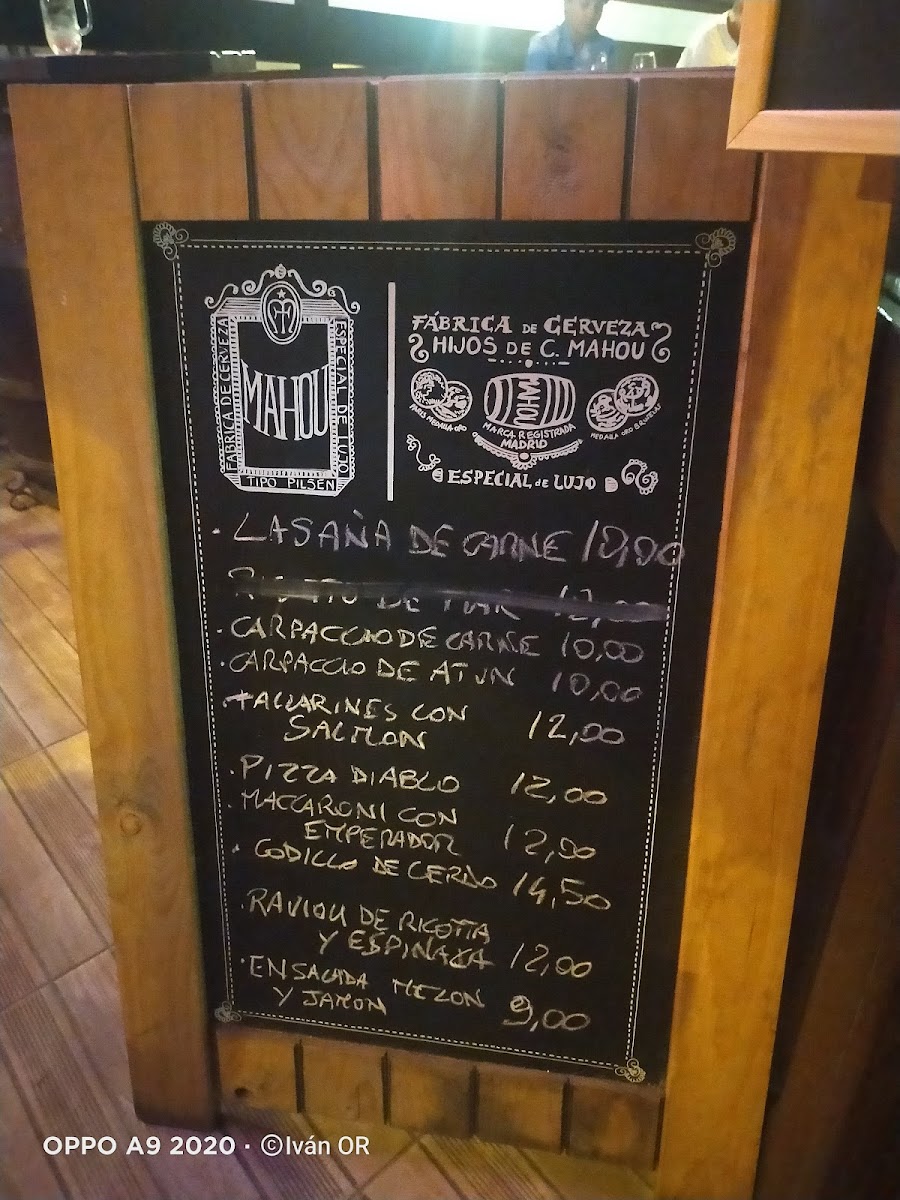 FÁBRICA DE CERVEZA
MAHOU
ESPECIAL DE LUJO
TIPO PILSEN
FÁBRICA DE CERVEZA
HIJOS DE C. MAHOU
PARIS MEDALLA ORO
MAHOU
MARCA REGISTRADA
MADRID
MEDALLA ORO BRUSELAS
ESPECIAL DE LUJO
· LASAÑA DE CARNE 10,00
DE MAR 12,00
· CARPACCIO DE CARNE 10,00
· CARPACCIO DE ATUN 10,00
TALLARINES CON
SALMON 12,00
· PIZZA DIABLO 12,00
· MACCARONI CON
EMPERADOR 12,00
· CODILLO DE CERDO 14,50
· RAVIOLI DE RICOTTA
Y ESPINACA 12,00
· ENSALADA MELON
Y JAMON 9,00
OPPO A9 2020 · ©Iván OR